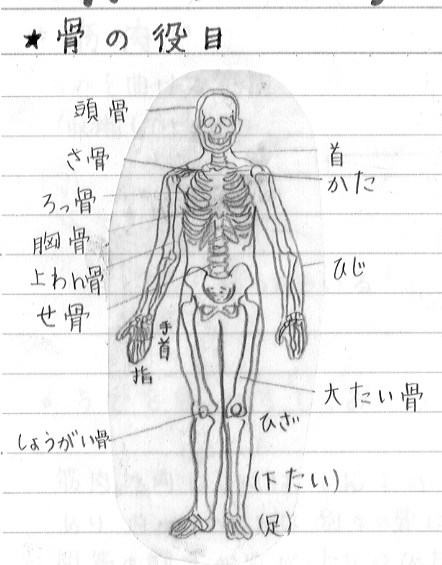 ★骨の役目
頭骨
さ骨
ろっ骨
胸骨
上わん骨
せ骨
手首
指
しょうがい骨
首
かた
ひじ
大たい骨
ひざ
(下たい)
(足)